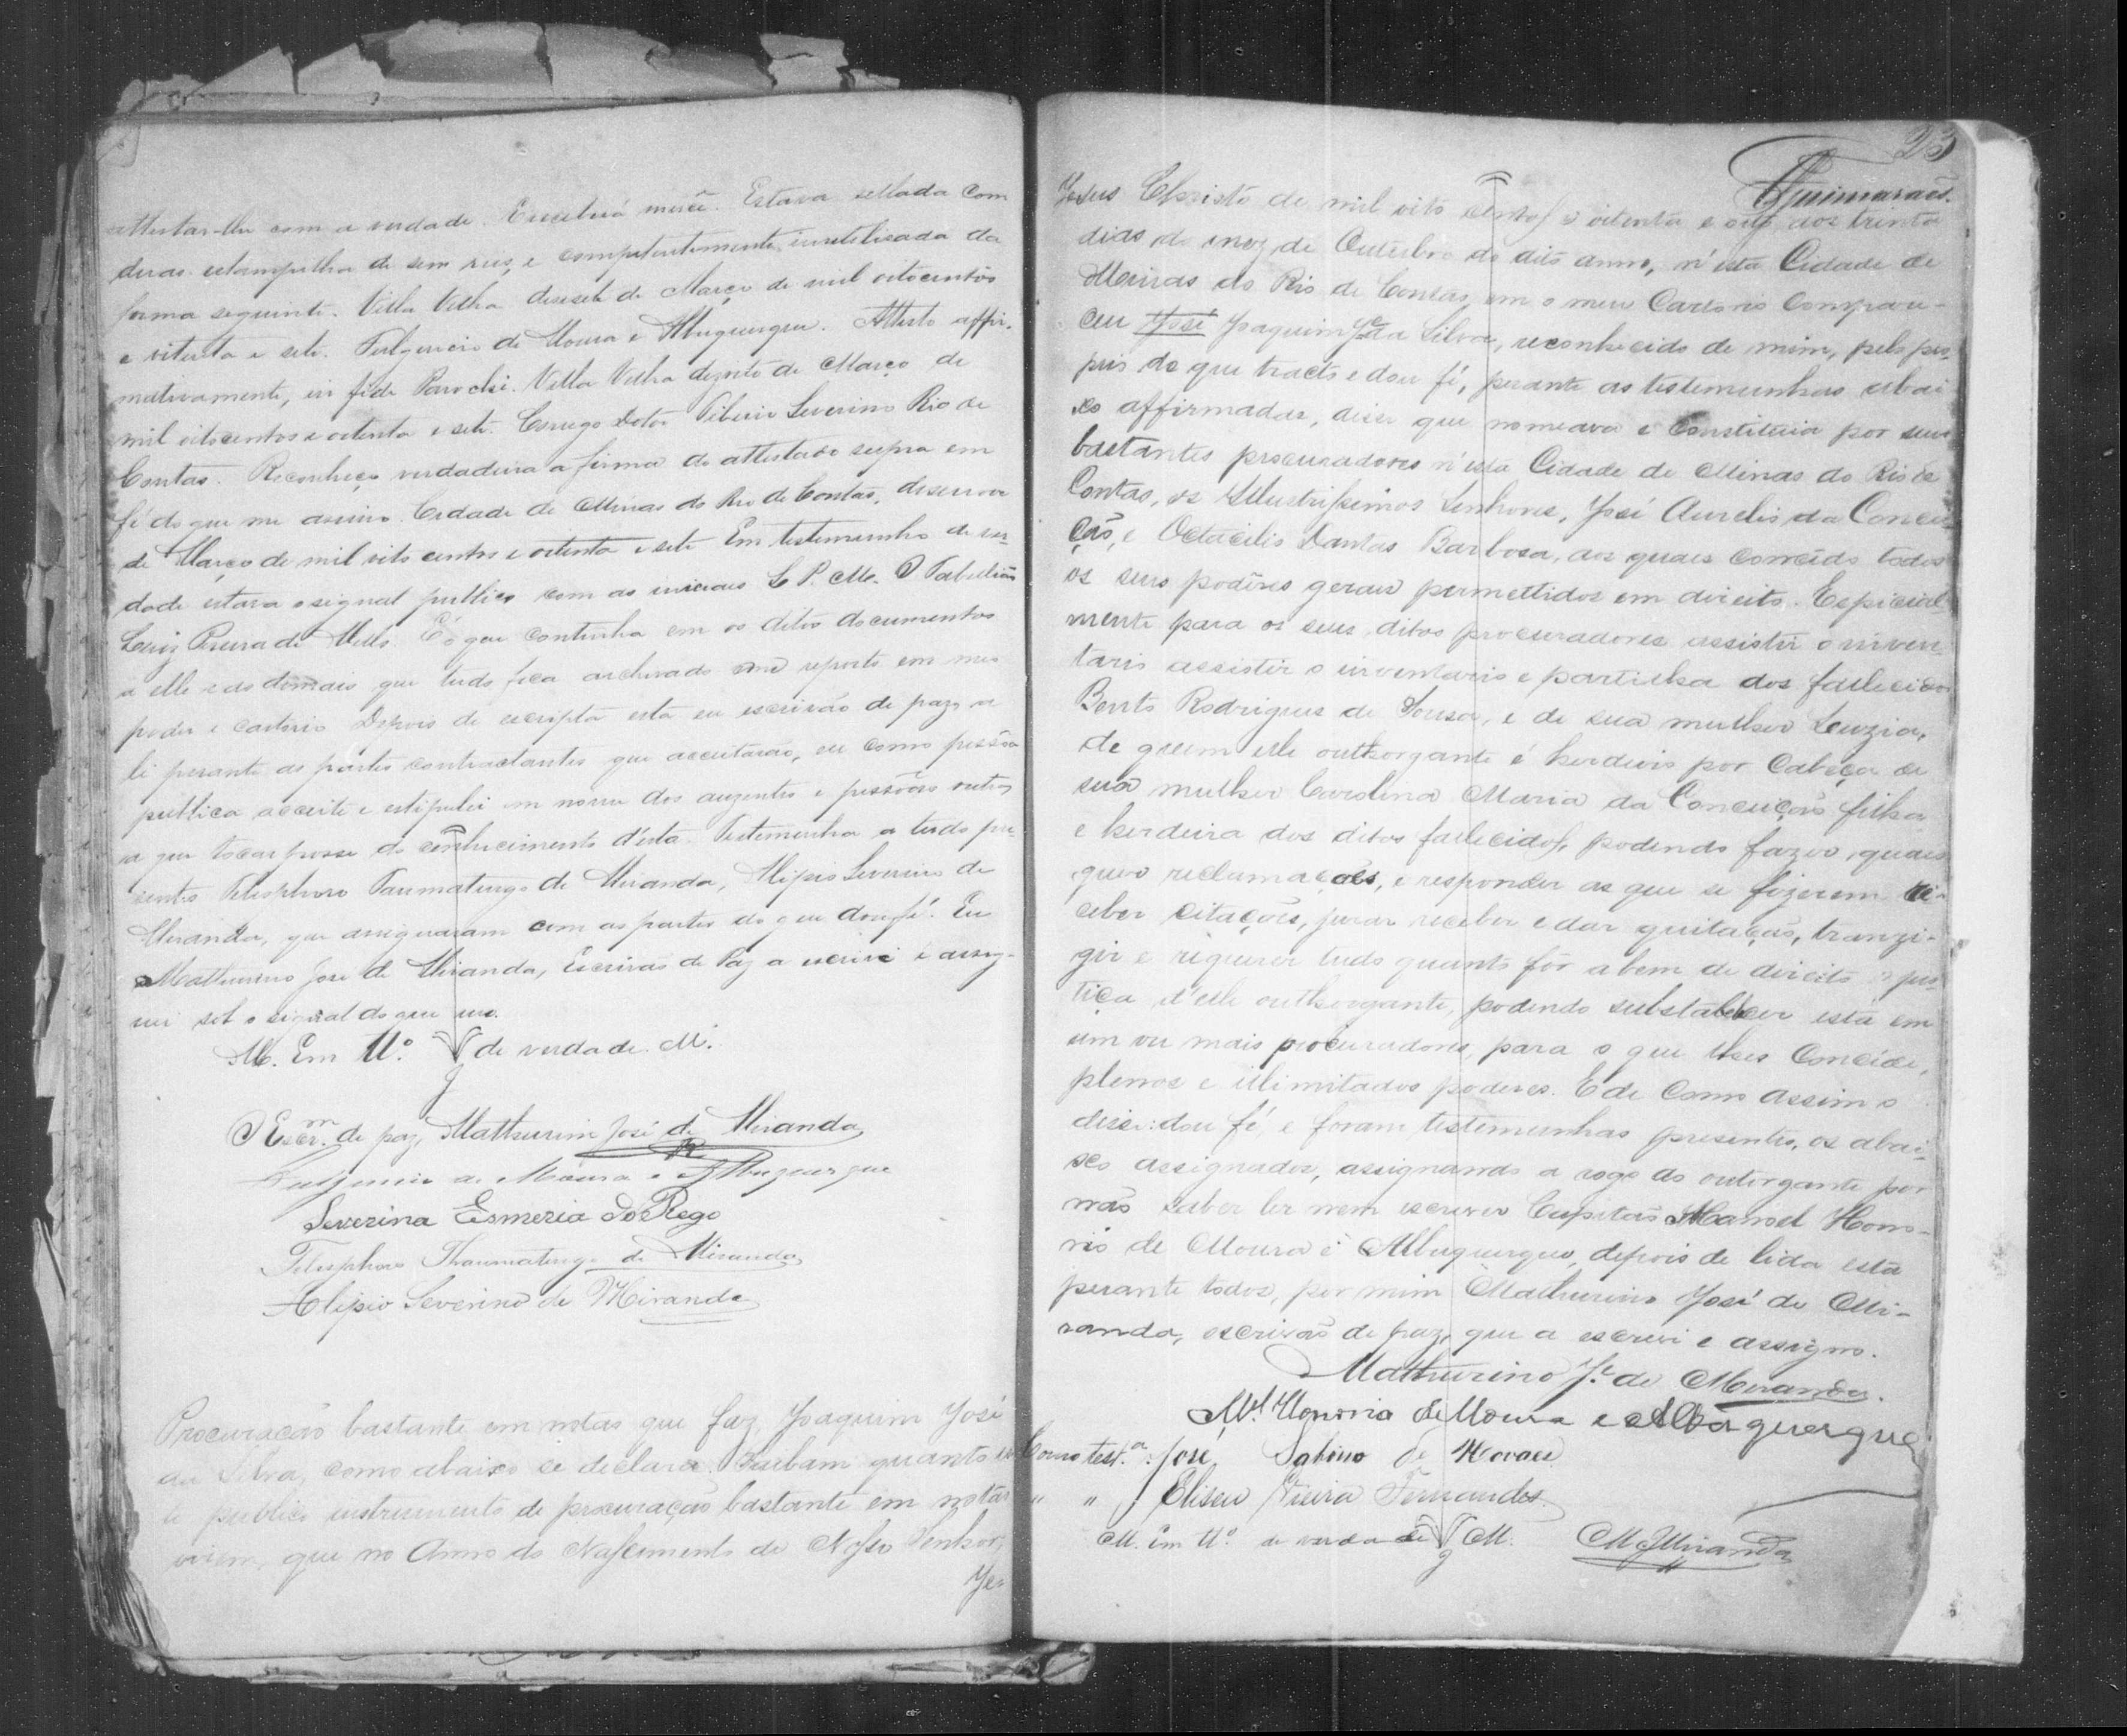 attestar-lhe com a verdade. E receberá mercê. Estava sellada com
duas estampilha de sem reis, e competentemente inutilisada da
forma seguinte. Villa Velha desesete de Março de mil oitocentos
e oitenta e sete. Fulgencio de Moura e Albuquerque. Attesto affir-
mativamente, in fide Parochi. Villa Velha dezoito de Março de
mil oitocentos e oitenta e sete. Conego Dotor Tiberio Severino Rio de
Contas. Reconheço verdadeira a firma do attestado supra em
fé do que me assino. Cidade de Minas do Rio de Contas, desenove
de Março de mil oito centos e oitenta e sete Em testemunho de ver-
dade estava o signal publico com as iniciaes L. P. M. O Tabellião
Luiz Pereira de Mello. E o que continha em os ditos documentos
a elle e as demais que tudo fica archivado me reporto em meu
poder e cartorio Depois de escripta esta eu escrivão de paz a
li perante as partes contractantes que acceitarão, eu como pessôa
publica acceite e estipulei em nome dos auzentes e pessôas outras
a que tocar possa do conhecimento d'esta. Testemunha a tudo pre-
sentes Telesphoro Taumaturgo de Miranda, Alipio Severino de
Miranda, que assignaram com as partes do que dou fé. Eu
Mathurino José de Miranda, Escrivão de Paz a escrivi e assig-
nei sob o signal do que uso.
M. Em tt.º de verdade. M.
O Escr.m de paz, Mathurino José de Miranda
Fulgencio de Moura e Albuquerque
Severina Esmeria do Rego
Telesphoro Thaumaturgo de Miranda
Alipio Severino de Miranda
Procuração bastante em notas que faz Joaquim José
da Silva, como abaixo se declara. Saibam quantos es-
te publico instrumento de procuração bastante em notas
virem, que no Anno do Nascimento de Nosso Senhor
Je-
23
Guimarães.
Jesus Christo de mil oito centos e oitenta e oito aos trinta
dias do mez de Outubro do dito anno, n'esta Cidade de
Minas do Rio de Contas, em o meu Cartorio compare-
ceu José Joaquim Je da Silva, reconhecido de mim, pelo pro-
prio do que tracto e dou fé, perante as testemunhas abai
xo affirmadas, disse que nomeava e Constituia por seus
bastantes procuradores n'esta Cidade de Minas do Rio de
Contas, os Illustrissimos Senhores, José Aurelio da Concei
ção, e Octacilio Dantas Barbosa, aos quaes concede todos
os seus podêres geraes permettidos em direito. Especial-
mente para os seus ditos procuradores assistir o inven-
tario assistir o inventario e partilha dos fallecidos
Bento Rodrigues de Sousa, e de sua mulher Luzia,
de quem elle outhorgante é herdeiro por Cabeça de
sua mulher Carolina Maria da Conceição filha
e herdeira dos ditos fallecidos, podendo fazer, quaes
quer reclamações, e responder as que se fizerem re-
ceber citações, jurar receber e dar quitação, tranzi-
gir e riquerer tudo quanto fôr a bem de direito e jus-
tiça d'elle outhorgante, podendo substabelecer esta em
um ou mais procuradores, para o que lhes concede,
plenos e illimitados poderes. E de como assim o
disse: dou fé, e foram testemunhas presentes, os abai-
xo assignados, assignando a rogo do outorgante por
não saber ler nem escrever Capitão Manoel Hono-
rio de Moura e Albuquerque, depois de lida esta
perante todos, por mim Mathurino José de Mi-
randa, escrivão de paz, que a escrevi e assigno.
Mathurino J.e de Miranda.
M.el Honorio de Moura e Albuquerque
Como test.as: José Sabino de Moraes
" " Eliseu Vieira Fernandes
M. Em tt.º de verdade M. M J Miranda